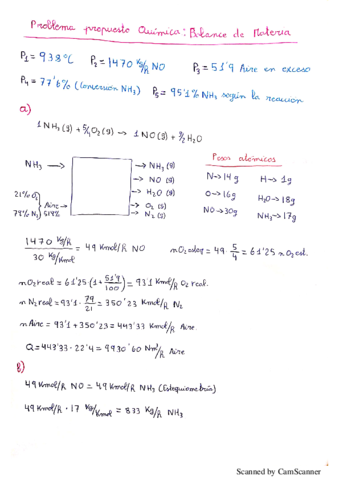 Problema propuesto Química: Balance de Materia
P1 = 938ºC P2 = 1470 Kg/h NO P3 = 51'9 Aire en exceso
P4 = 77'6% (conversión NH3) P5 = 95'1% NH3 según la reacción
a)
1 NH3 (g) + 5/4 O2 (g) → 1 NO (g) + 3/2 H2O
NH3 →
→ NH3 (g)
→ NO (g)
→ H2O (g)
→ O2 (g)
→ N2 (g)
21% O2
79% N2
Aire →
51'9%
Pesos atómicos
N → 14 g H → 1g
O → 16g H2O → 18g
NO → 30g NH3 → 17g
1470 Kg/h / 30 Kg/Kmol = 49 Kmol/h NO nO2 esteq = 49 · 5/4 = 61'25 n O2 est.
nO2 real = 61'25 (1 + 51'9/100) = 93'1 Kmol/h O2 real.
n N2 real = 93'1 · 79/21 = 350'23 Kmol/h N2
n Aire = 93'1 + 350'23 = 443'33 Kmol/h Aire
Q = 443'33 · 22'4 = 9930'60 Nm3/h Aire
b)
49 Kmol/h NO = 49 Kmol/h NH3 (Estequiometría)
49 Kmol/h · 17 Kg/Kmol = 833 Kg/h NH3
Scanned by CamScanner